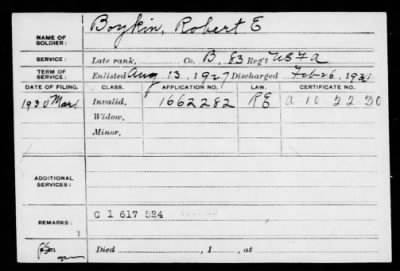 NAME OF SOLDIER: Boykin, Robert E
SERVICE: Late rank, Co. B. 83 Reg't USFA
TERM OF SERVICE: Enlisted Aug 13, 1927 Discharged Feb 26, 193
DATE OF FILING. CLASS. APPLICATION NO. LAW. CERTIFICATE NO.
1930 Mar 1 Invalid, 1662282 RE a 10 22 30
Widow,
Minor,
ADDITIONAL SERVICES:
REMARKS: C 1 617 524
1
Died , 1 , at